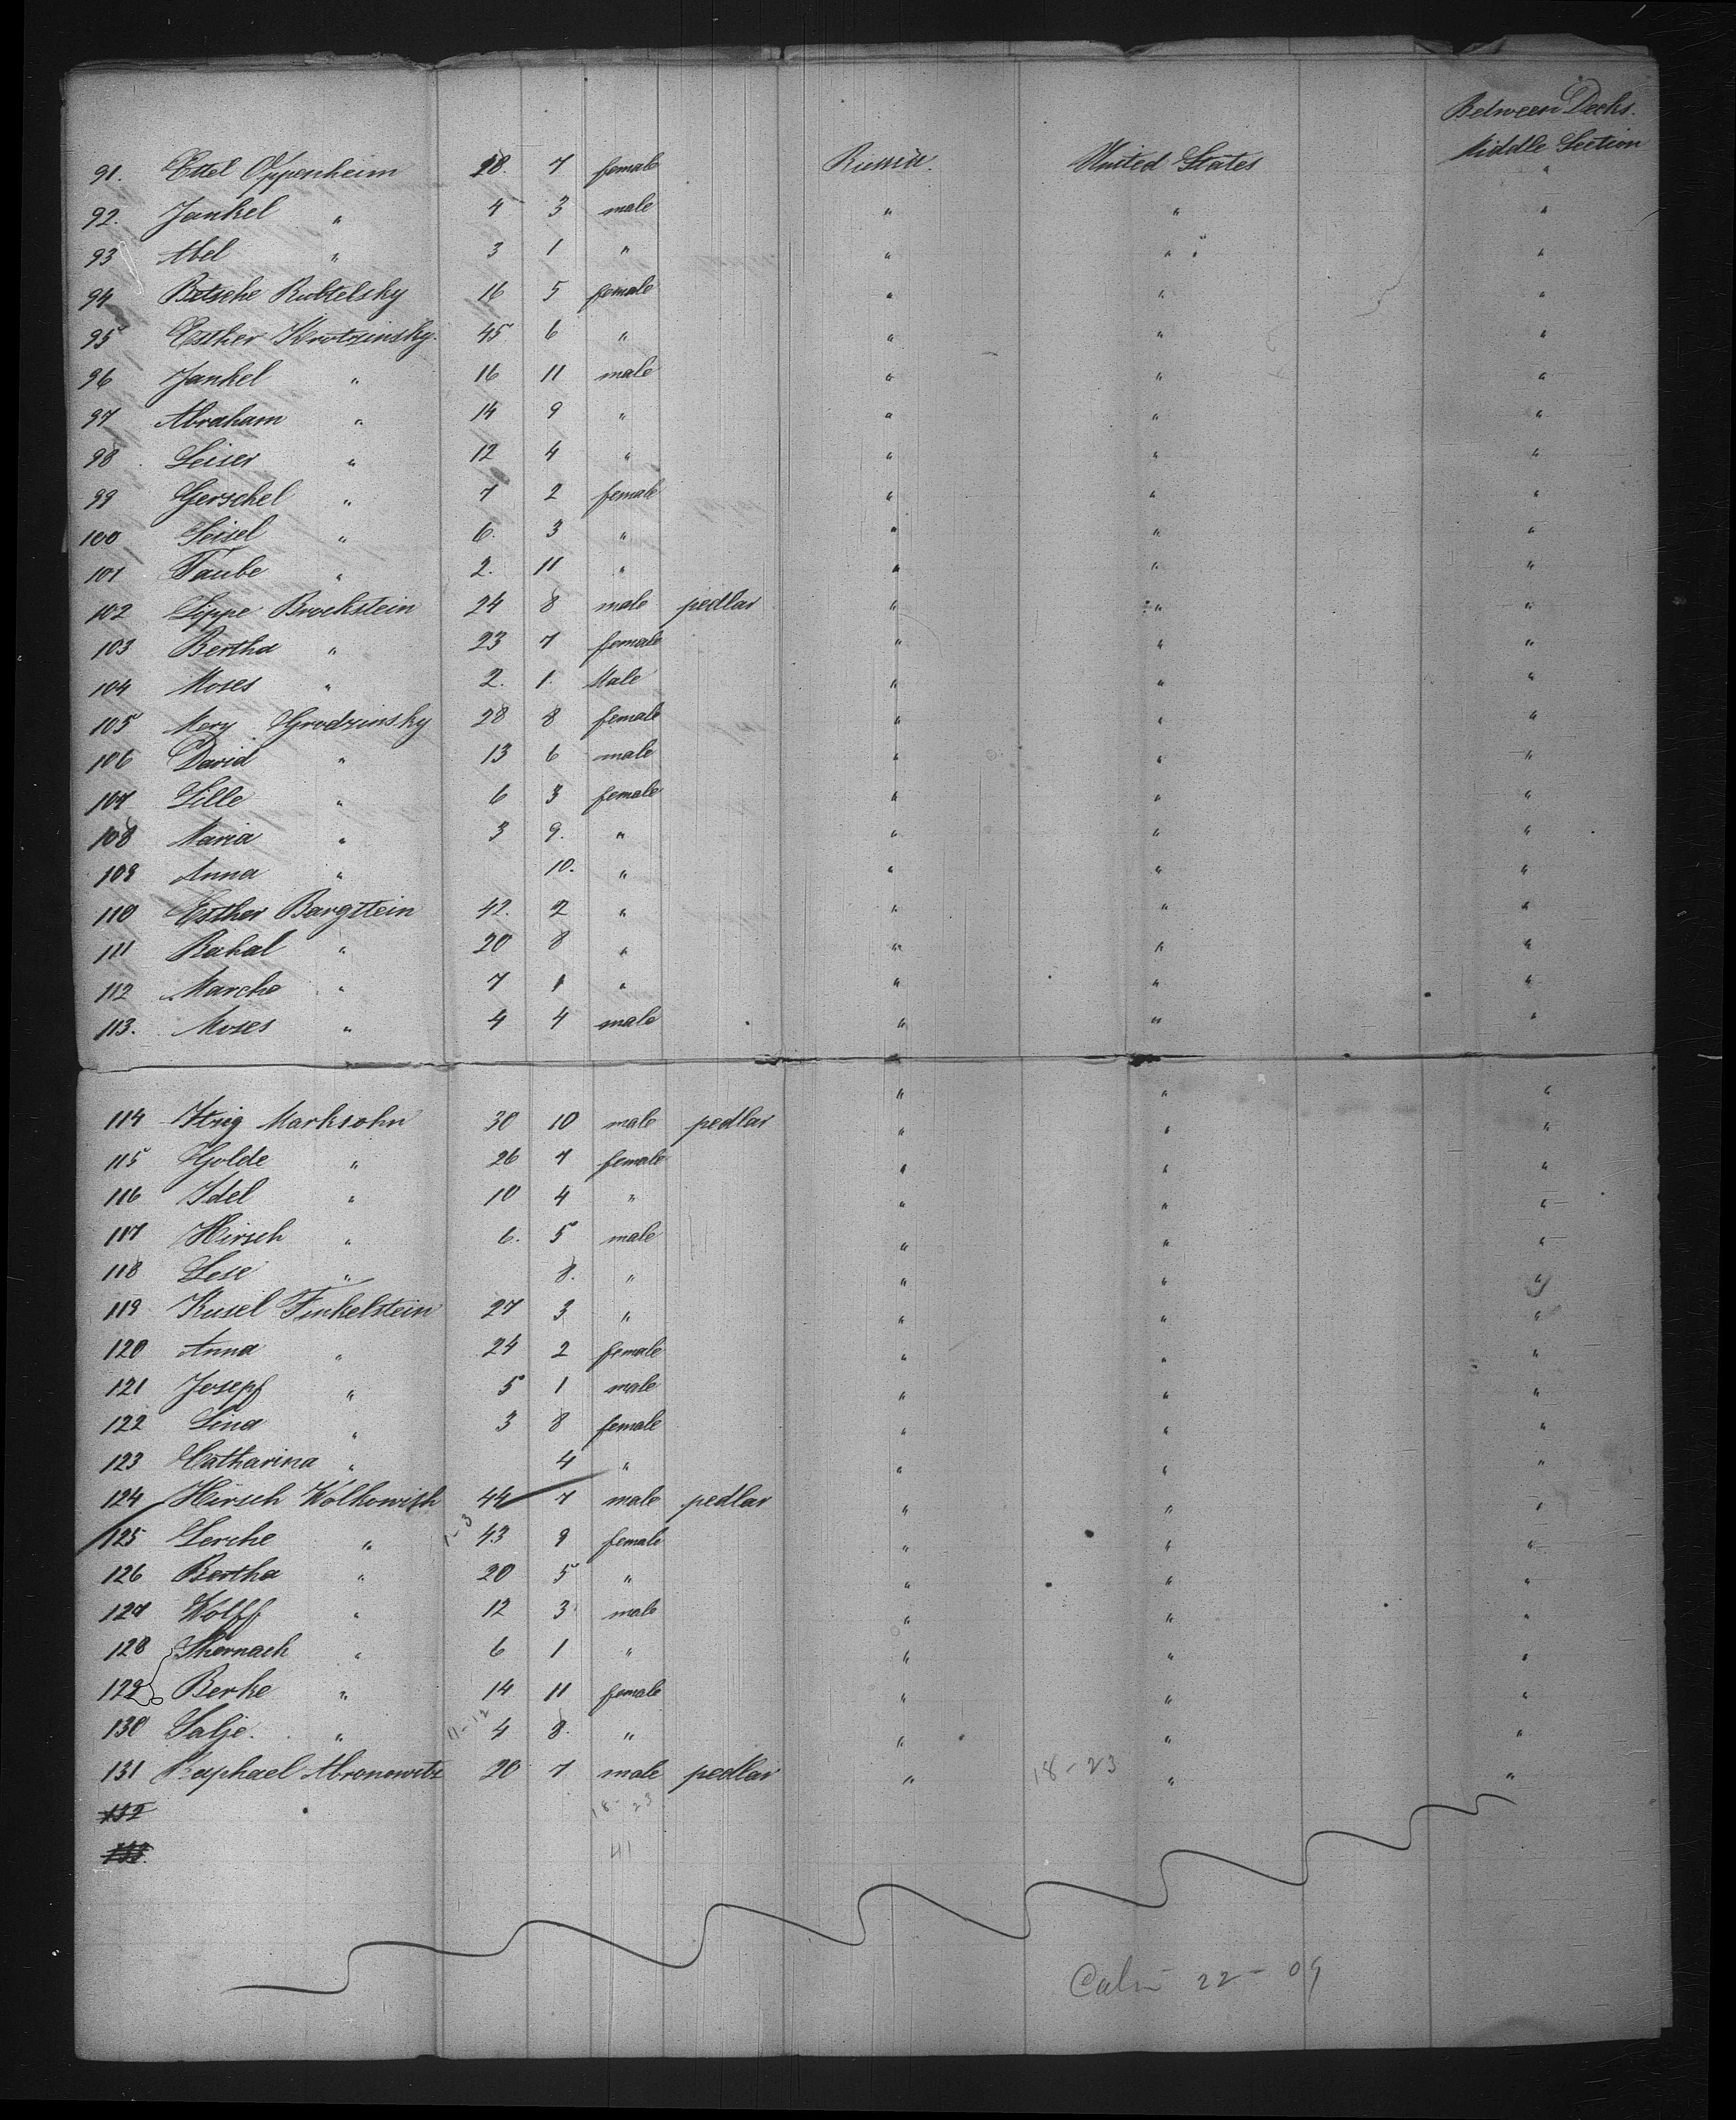 Between Decks.
Middle Section
91. Ettel Oppenheim 28. 7 female Russia. United States "
92. Jankel " 4 3 male " " "
93 Abel " 3 1 " " " "
94 Betsche Rubtelsky 16 5 female " " "
95 Esther Krotzinsky. 45 6 " " " "
96 Jankel " 16 11 male " " "
97 Abraham " 14 9 " " " "
98 Leiser " 12 4 " " " "
99 Gerschel " 7 2 female " " "
100 Leisel " 6. 3 " " " "
101 Taube " 2. 11 " " " "
102 Lippe Brockstein 24 8 male pedlar " " "
103 Bertha " 23 7 female " " "
104 Moses " 2. 1. Male " " "
105 Mery Grodzinsky 28 8 female " " "
106 David " 13 6 male " " "
107 Lille " 6 3 female " " "
108 Maria " 3 9. " " " "
109 Anna " 10. " " " "
110 Esther Bargstein 42. 2 " " " "
111 Rahal " 20 8 " " " "
112 Marche " 7 1 " " " "
113. Moses " 4 4 male " " "
" " "
114 Itzig Marksohn 30 10 male pedlar " " "
115 Golde " 26 7 female " " "
116 Idel " 10 4 " " " "
117 Hirsch " 6. 5 male " " "
118 Lese " 8. " " " "
119 Kusel Finkelstein 27 3 " " " "
120 Anna " 24 2 female " " "
121 Josepf " 5 1 male " " "
122 Lina " 3 8 female " " "
123 Catharina " 4 " " " "
124 Hirsch Wolkowisch 44 7 male pedlar " " "
125 Lerche " 43 9 female " " "
126 Bertha " 20 5 " " " "
127 Wolff " 12 3 male " " "
128 Skernach " 6 1 " " " "
129 Berke " 14 11 female " " "
130 Salje. " 4 8. " " " "
131 Raphael Abronowitz 20 7 male pedlar " 18-23 " "
132 18-23
133. 41
22-09